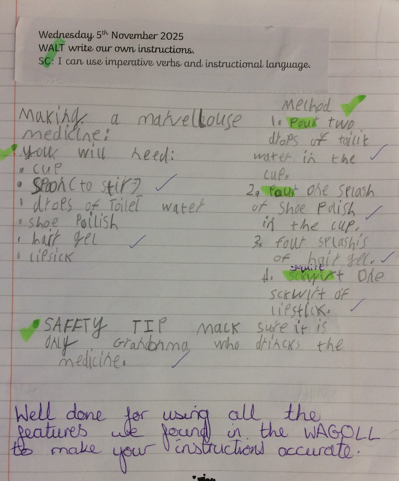 Wednesday 5th November 2025
WALT write our own instructions.
SC: I can use imperative verbs and instructional language.
Making a marvellouse
medicine:
you will need:
• cup
• Spoon (to stir)
• drops of Toilet water
• shoe Polish
• hair gel
• lipsick
Method
1. Pour two
drops of toilit
water in the
cup.
2. Pour one splash
of shoe Polish
in the cup.
3. four splashis
of hair gel.
squirt
4. one
sckwirt of
lipstick.
SAFETY TIP mack sure it is
only Grandmma who drincks the
medicine.
Well done for using all the
features we found in the WAGOLL
to make your instructions accurate.